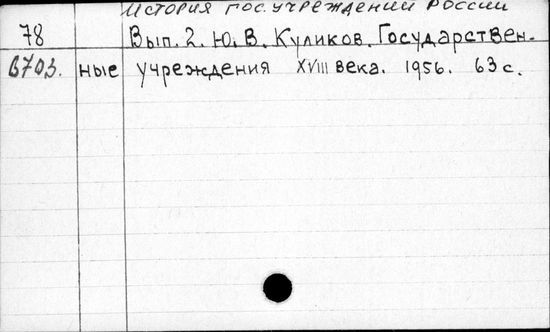 История гос.учреждений России
78 Вып. 2. Ю. В. Куликов. Государствен-
6703. ные учреждения XVIII века. 1956. 63 с.